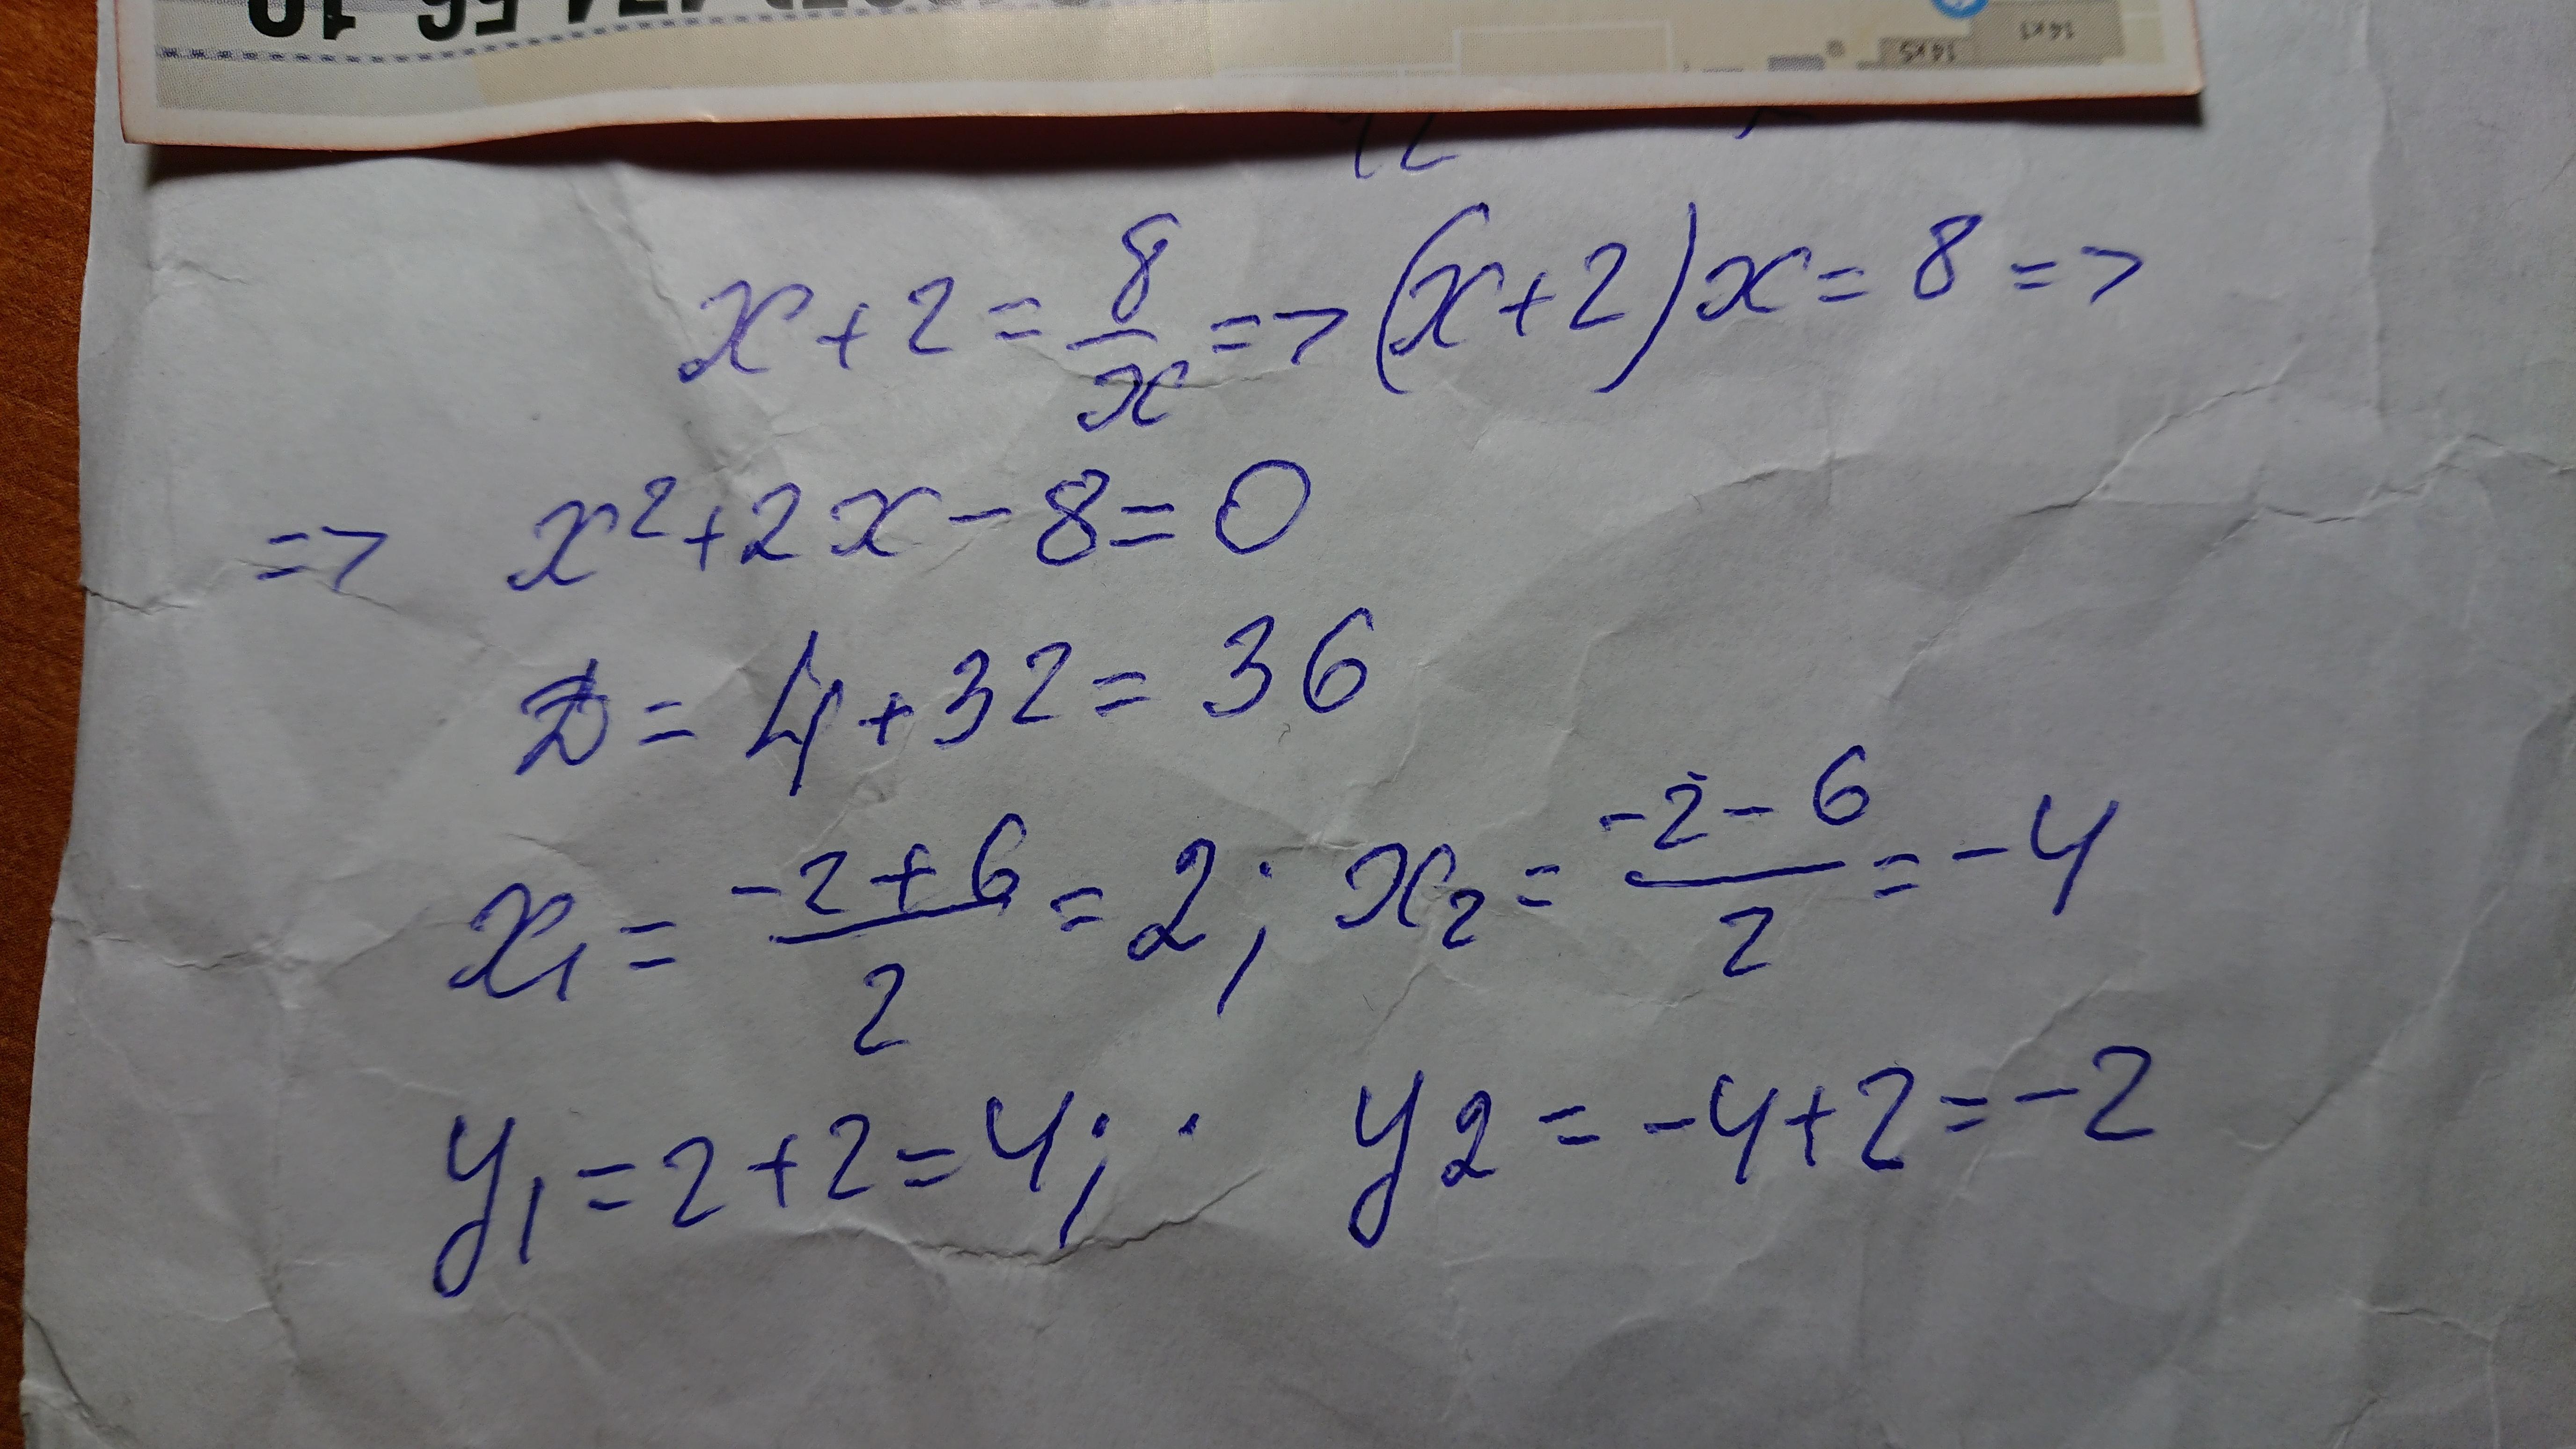 x + 2 = 8/x => (x+2)x = 8 =>
=> x² + 2x - 8 = 0
D = 4 + 32 = 36
x₁ = (-2 + 6)/2 = 2; x₂ = (-2 - 6)/2 = -4
y₁ = 2 + 2 = 4; y₂ = -4 + 2 = -2